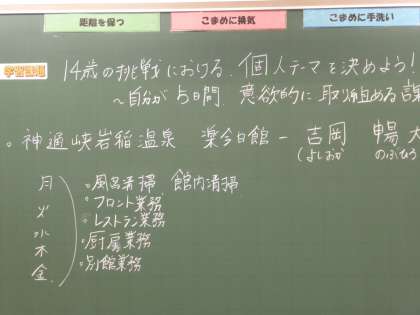 距離を保つ
こまめに換気
こまめに手洗い
学習課題
14歳の挑戦における、個人テーマを決めよう!
～自分が5日間、意欲的に取り組める課
○神通峡岩稲温泉 楽今日館－吉岡 暢大
(よしおか のぶひろ
月 ○風呂清掃 館内清掃
火 ○フロント業務
○レストラン業務
水
木 ○厨房業務
金 ○別館業務